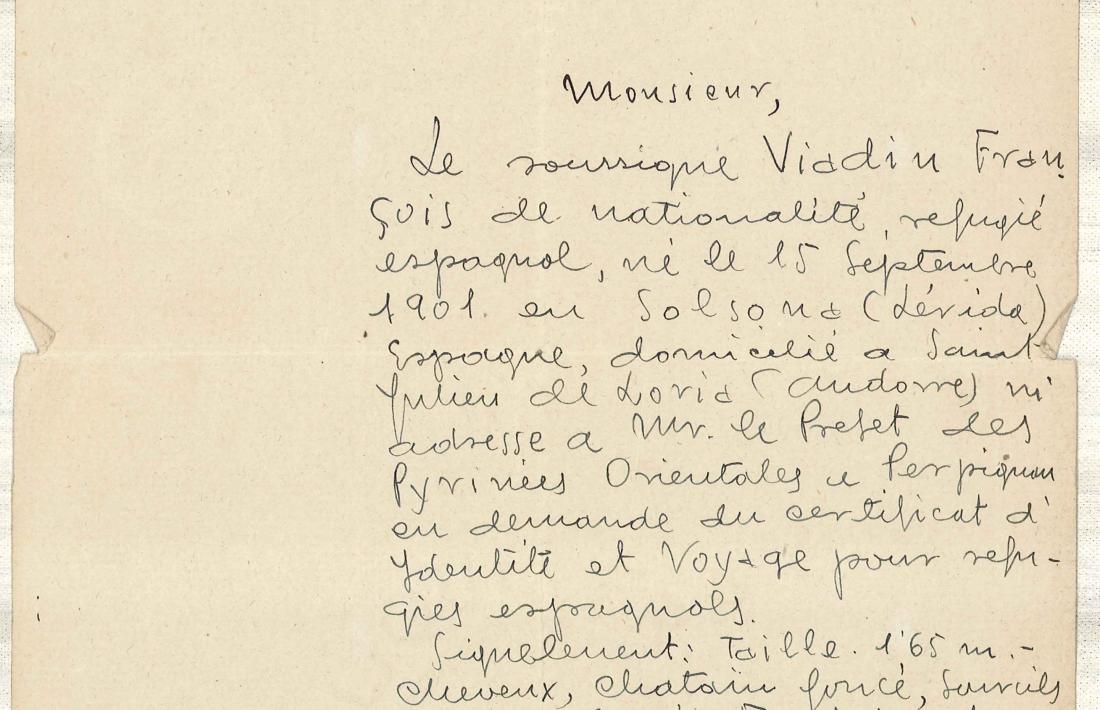 Monsieur,
Le soussigne Viadin Fran
çois de nationalité, refugié
espagnol, né le 15 Septembre
1901. en Solsona (Lérida)
Espagne, domicilié a Saint
Julien de Loria (Andorre) m'
adresse a Mr. le Prefet des
Pyrinées Orientales a Perpignan
en demande du certificat d'
Ydentité et Voyage pour refu-
gies espagnols.
Signelement: Taille. 1'65 m.-
cheveux, chatain foncé, Sourcils